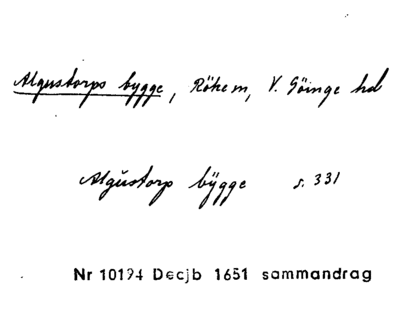 Algustorps bygge, Rökem, V. Göinge hd
Algŭstorp bÿgge s. 331
Nr 10194 Decjb 1651 sammandrag